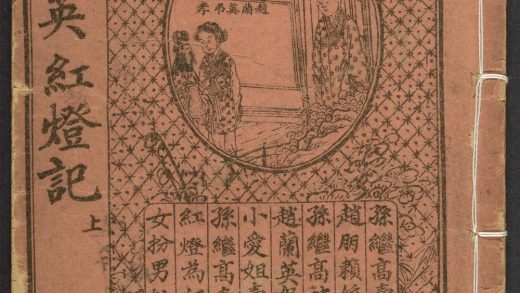 趙蘭英弔孝
孫繼高
趙朋賴
孫繼高
趙蘭英
小愛姐
孫繼高
紅燈為
女扮男
英紅燈記
上